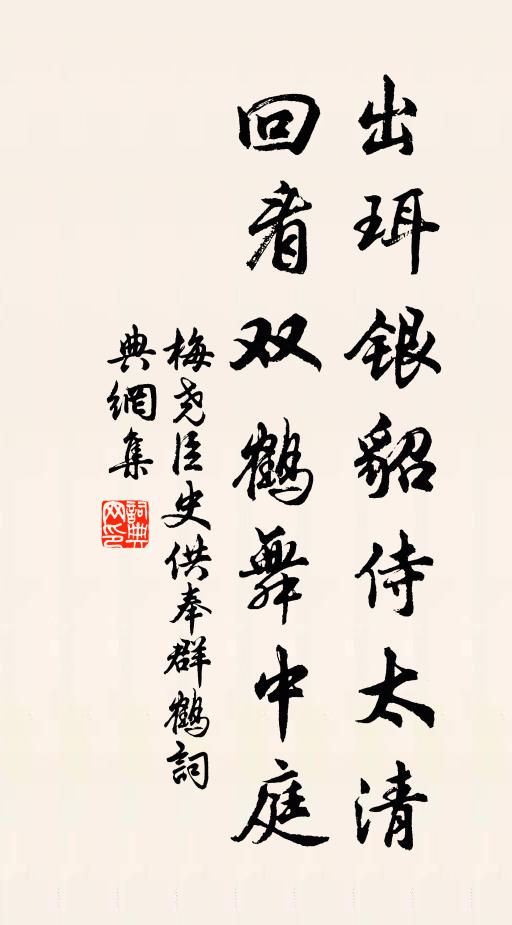 出珥銀貂侍太清
回看双鶴舞中庭
梅尧臣史供奉群鶴詞
典網集
詞典网印